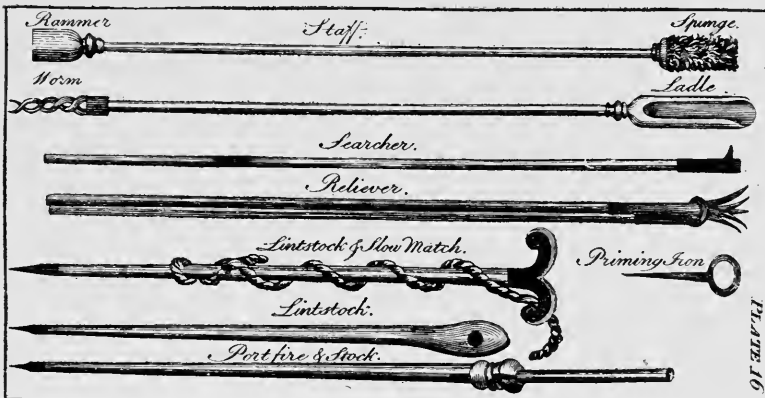 Rammer Staff. Spunge.
Worm Ladle.
Searcher.
Reliever.
Lintstock & Slow Match.
Priming Iron
Lintstock.
Portfire & Stock.
PLATE 16